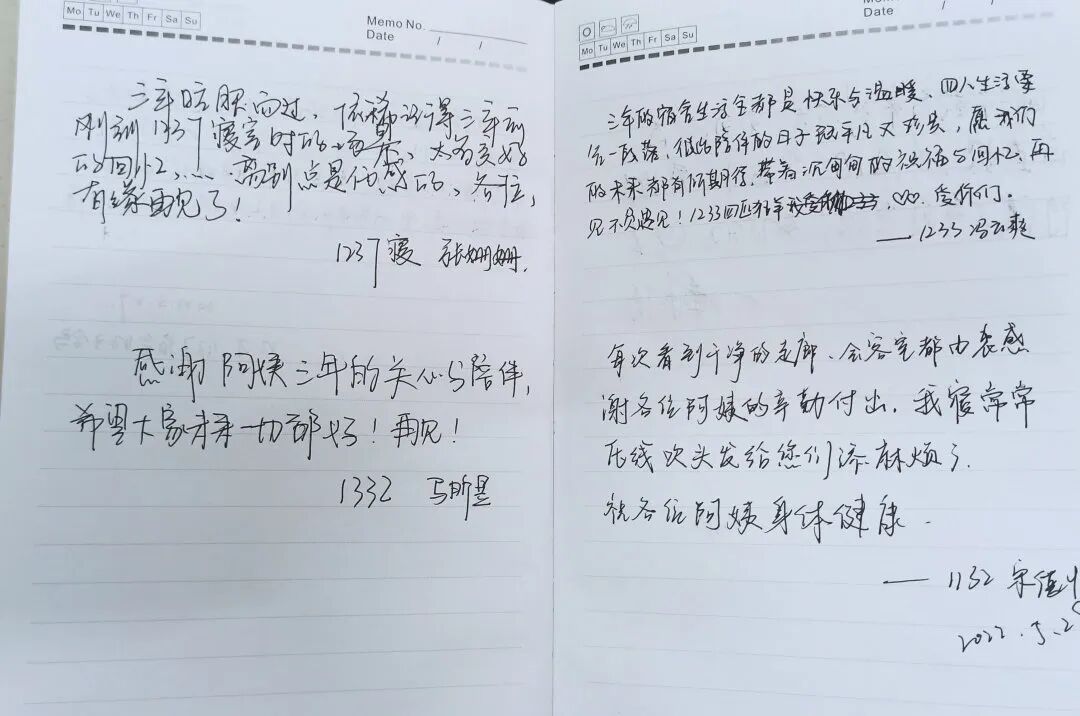 Mo Tu We Th Fr Sa Su
Memo No.
Date / /
三年眨眼而过，依稀记得三年前
刚到1237寝室时的场景、太多美好
的回忆……离别总是伤感的、各位，
有缘再见了！
1237寝 张姗姗.
感谢阿姨三年的关心与陪伴，
希望大家未来一切都好！再见！
1332 马昕昱
Mo Tu We Th Fr Sa Su
Memo No.
Date / /
三年的宿舍生活全都是快乐与温暖、四人生活要
告一段落，彼此陪伴的日子既平凡又珍贵，愿我们
的未来都有所期待，带着沉甸甸的祝福与回忆，再
见不负遇见！1233四匹 爱你们。
—— 1233 冯云爽
每次看到干净的走廊、会客室都由衷感
谢各位阿姨的辛勤付出，我寝常常
压线吹头发给您们添麻烦了.
祝各位阿姨身体健康.
—— 1132 宋佳
2022.5.2